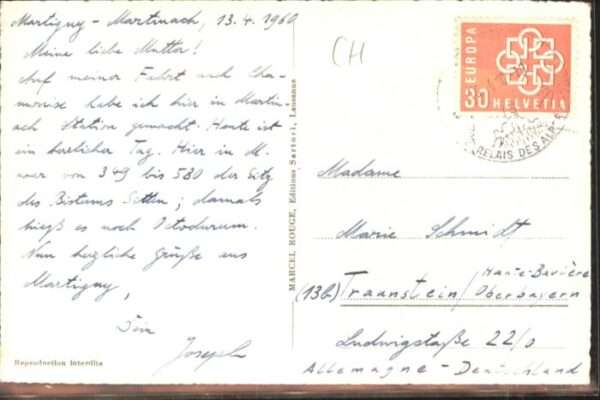 Martigny - Martinach, 13.4.1960
Meine liebe Mutter!
Auf meiner Fahrt nach Cha-
monix habe ich hier in Martin-
ach Station gemacht. Heute ist
ein herrlicher Tag. Hier in M.
war von 349 bis 580 der Sitz
des Bistums Sitten; damals
hieß es noch Octodurum.
Nun herzliche Grüße aus
Martigny,
Dein
Joseph
Reproduction interdite
MARCEL ROUGE, Editions Sartori, Lausanne
CH
EUROPA
30 HELVETIA
RELAIS DES ALPES
Madame
Marie Schmidt
Haute-Bavière
(13b) Traunstein/Oberbayern
Ludwigstraße 22/0
Allemagne - Deutschland